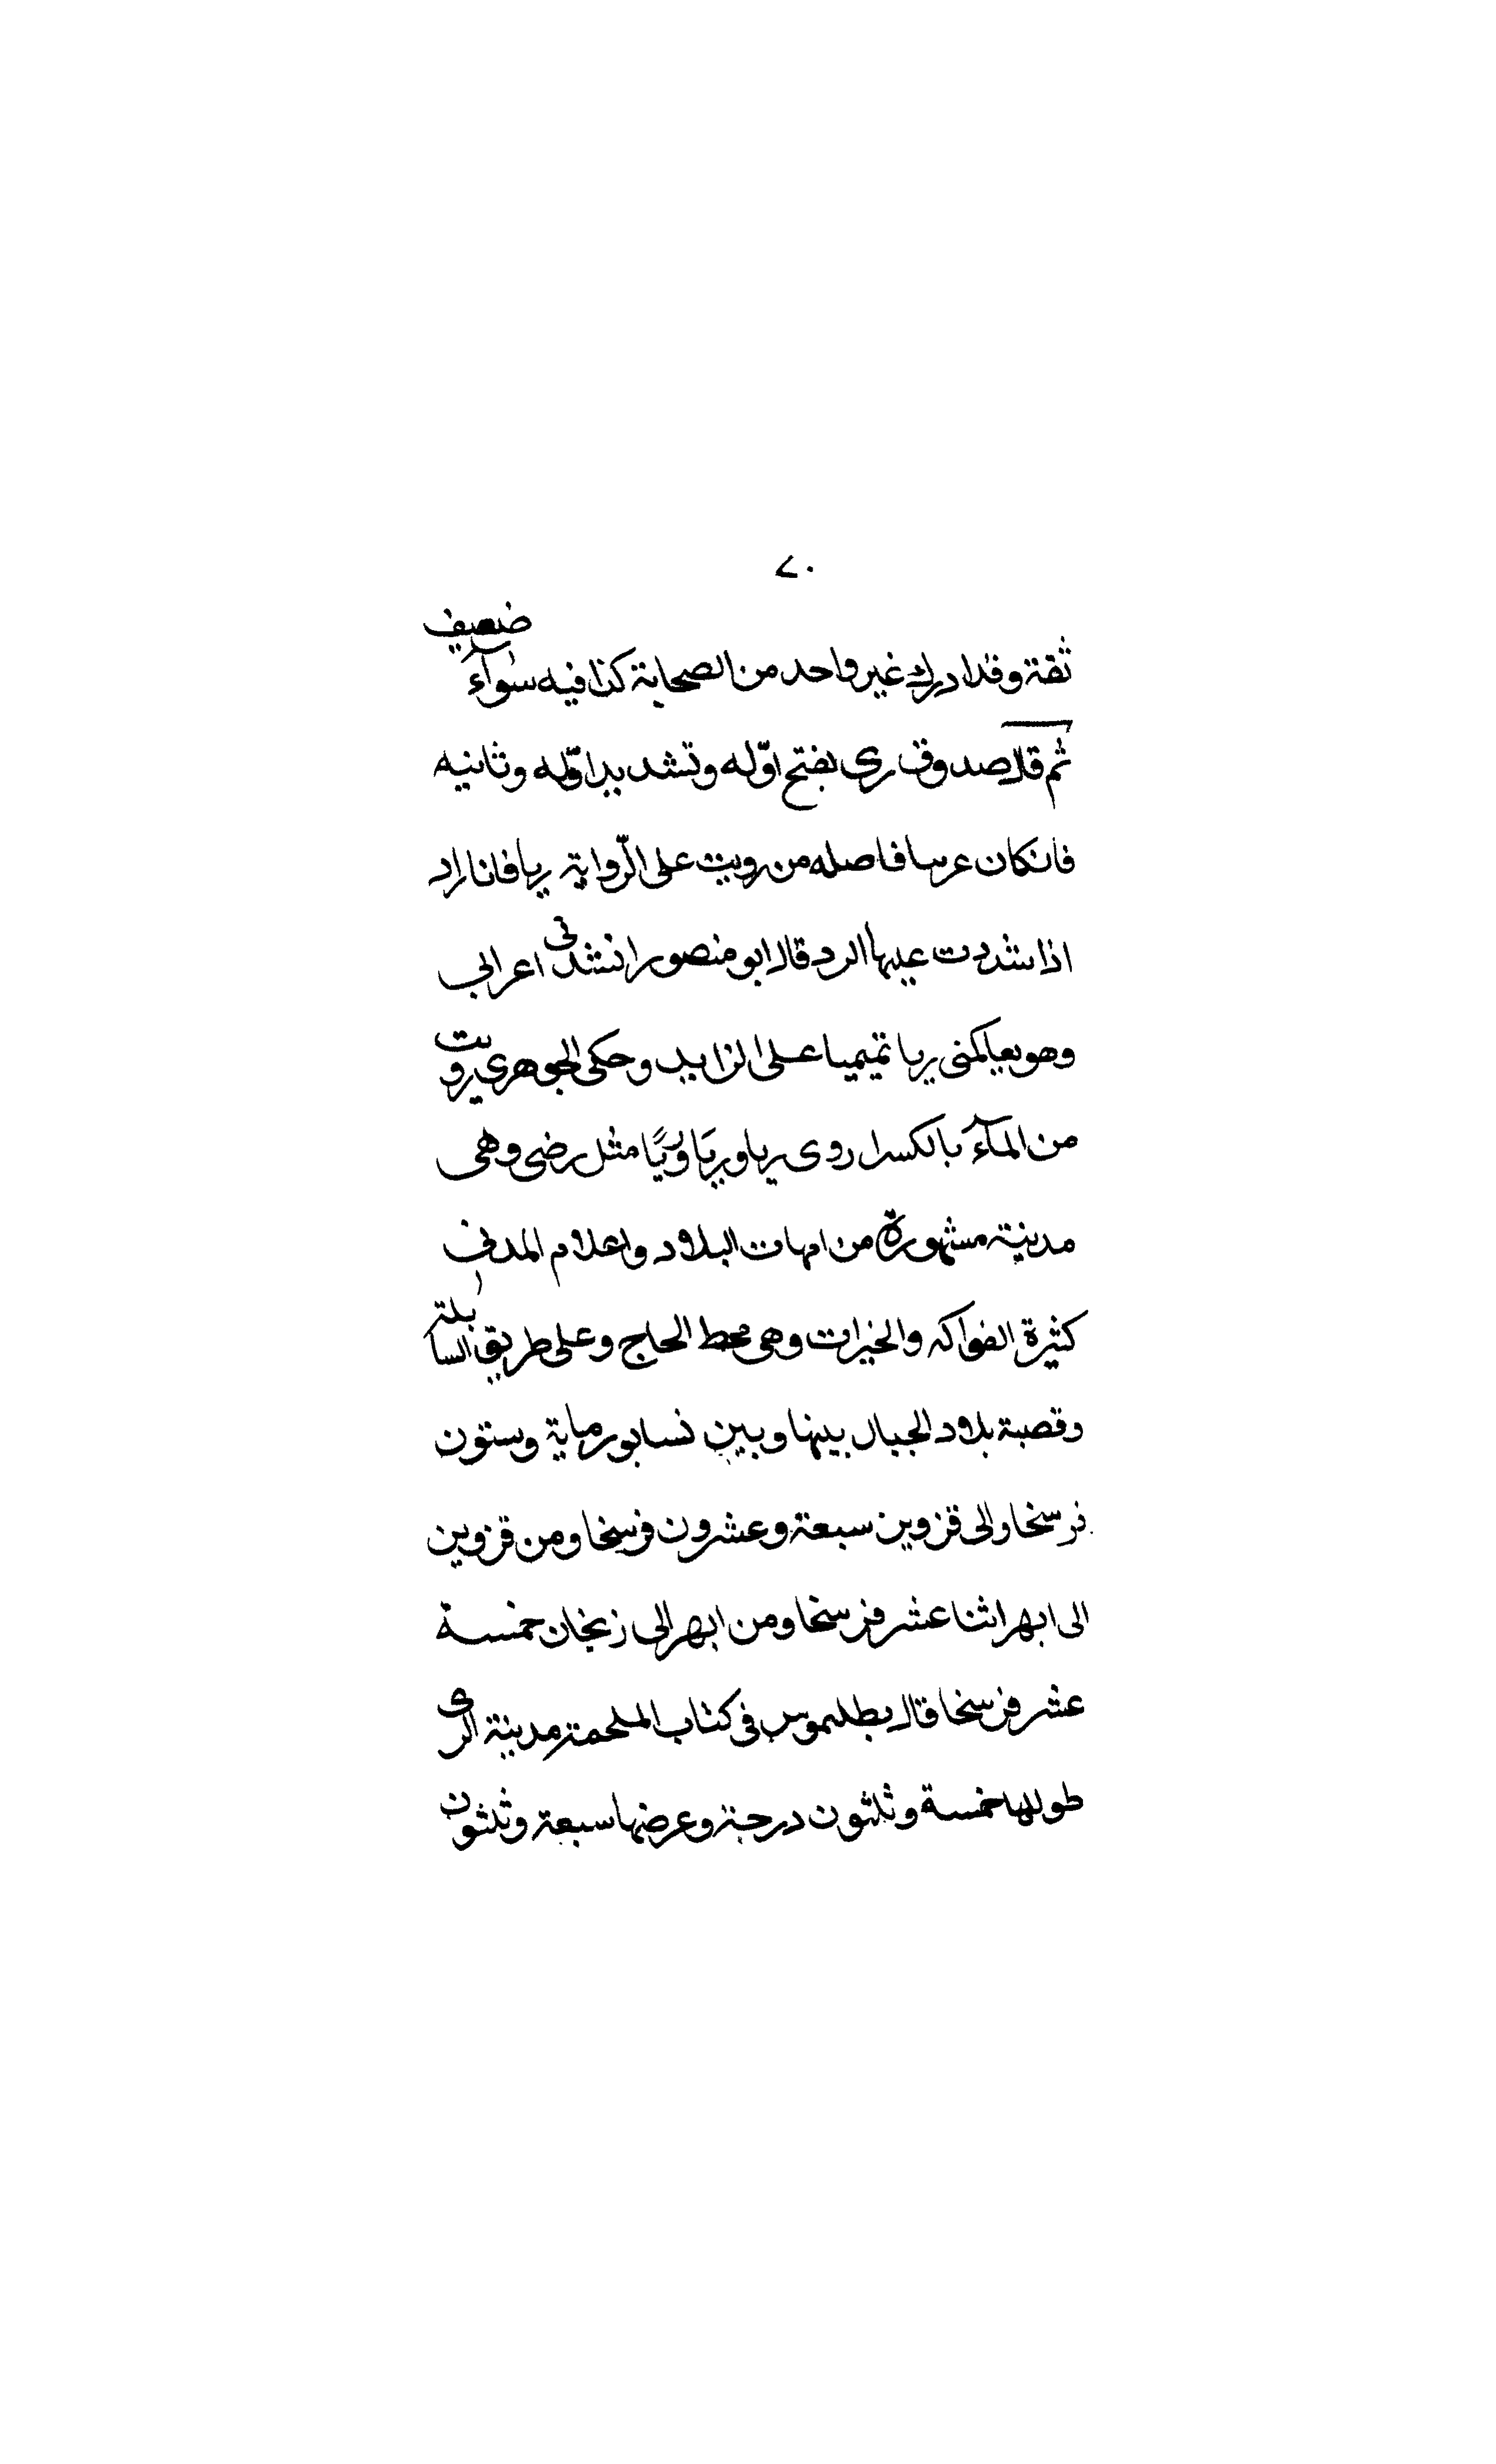 ٧٠
ضعيف
ثقة وقد ادرك غير واحد من الصحابة كذا فيه سوآء
ثم قال صدوق رى بفتح اوّله وتشديد اوّله وثانيه
فانكان عربيا فاصله من رويت على الرّواية ريا فانا راد
اذا شددت عليها الرد قال ابو منصور انشدنى اعرابى
وهو يعالمنى ريا تميميا على الزايد وحكى الجوهرى رويت
من المآء بالكسر اروى ريا وريًا ورِيًا مثل رضى وهى
مدينة مشهورة من امهات البلاد واعلام المدن
كثيرة الفواكه والخيرات وهى محط الحاج وعلى طريق السابلة
وقصبة بلاد الجبال بينها وبين نسابور ماية وستون
فرسخا والى قزوين سبعة وعشرون فرسخا ومن قزوين
الى ابهر اثنا عشر فرسخا ومن ابهر الى زنجان خمسة
عشر فرسخا قال بطليموس فى كتاب الملحمة مدينة الرى
طولها خمسة وثلثون درجة وعرضها سبعة وثلثون